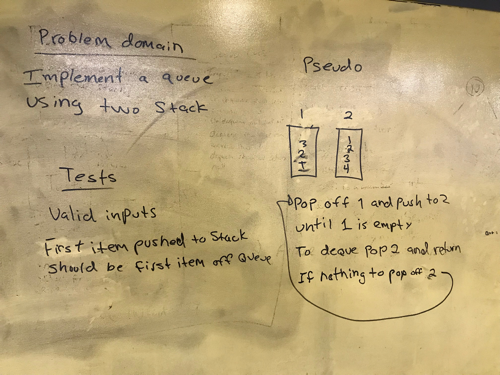 Problem domain
Implement a queue
using two Stack
Tests
Valid inputs
First item pushed to Stack
should be first item off Queue
Pseudo
1 2
3 1
2 2
1 3
4
Pop off 1 and push to 2
until 1 is empty
To deque pop 2 and return
If nothing to pop off 2